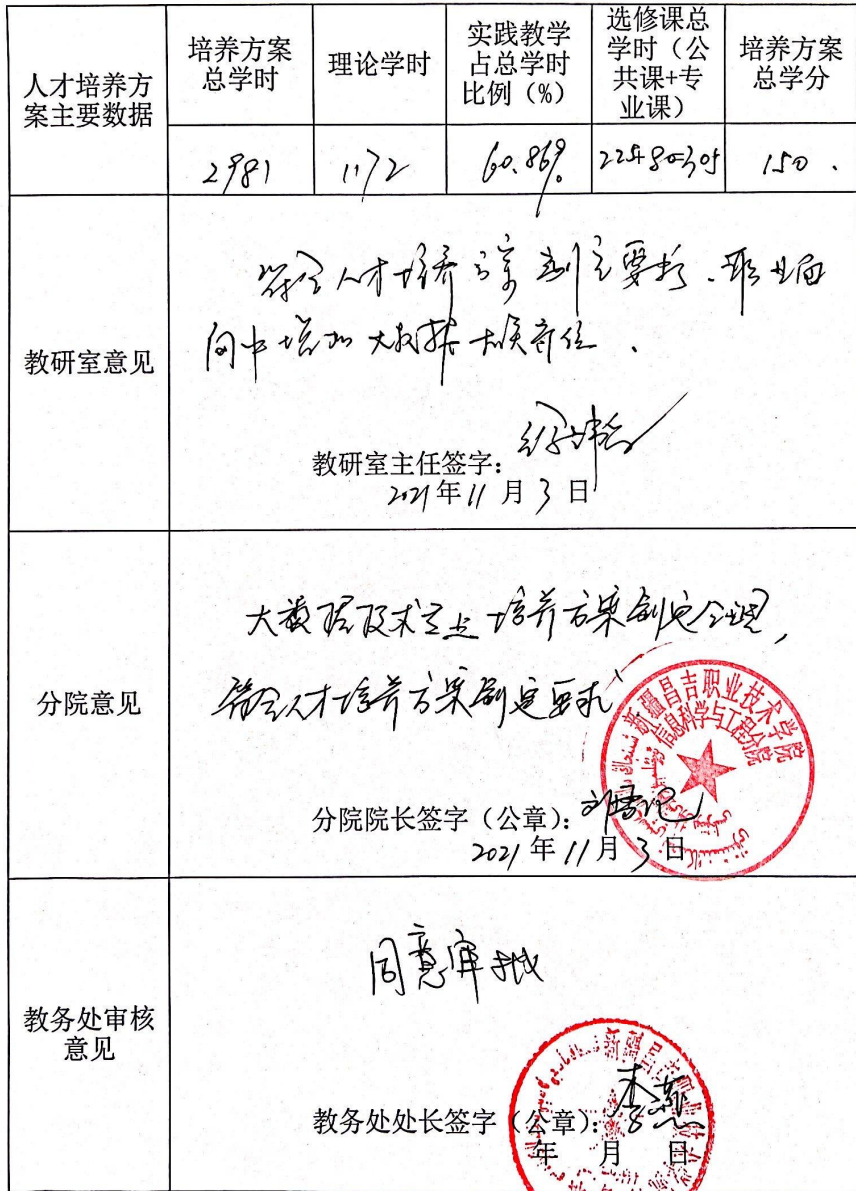 人才培养方案主要数据
培养方案总学时
理论学时
实践教学占总学时比例（%）
选修课总学时（公共课+专业课）
培养方案总学分
2981
1172
60.86%
225+80=305
150.
教研室意见
符合人才培养方案制定要求.职业面
向中增加大数据相关岗位.
教研室主任签字：
2021年11月3日
分院意见
大数据技术专业培养方案制定合理，
符合人才培养方案制定要求
新疆昌吉职业技术学院
信息科学与工程分院
分院院长签字（公章）：
2021年11月3日
教务处审核意见
同意审批
新疆昌吉职业技术学院
教务处处长签字（公章）：李燕
年 月 日